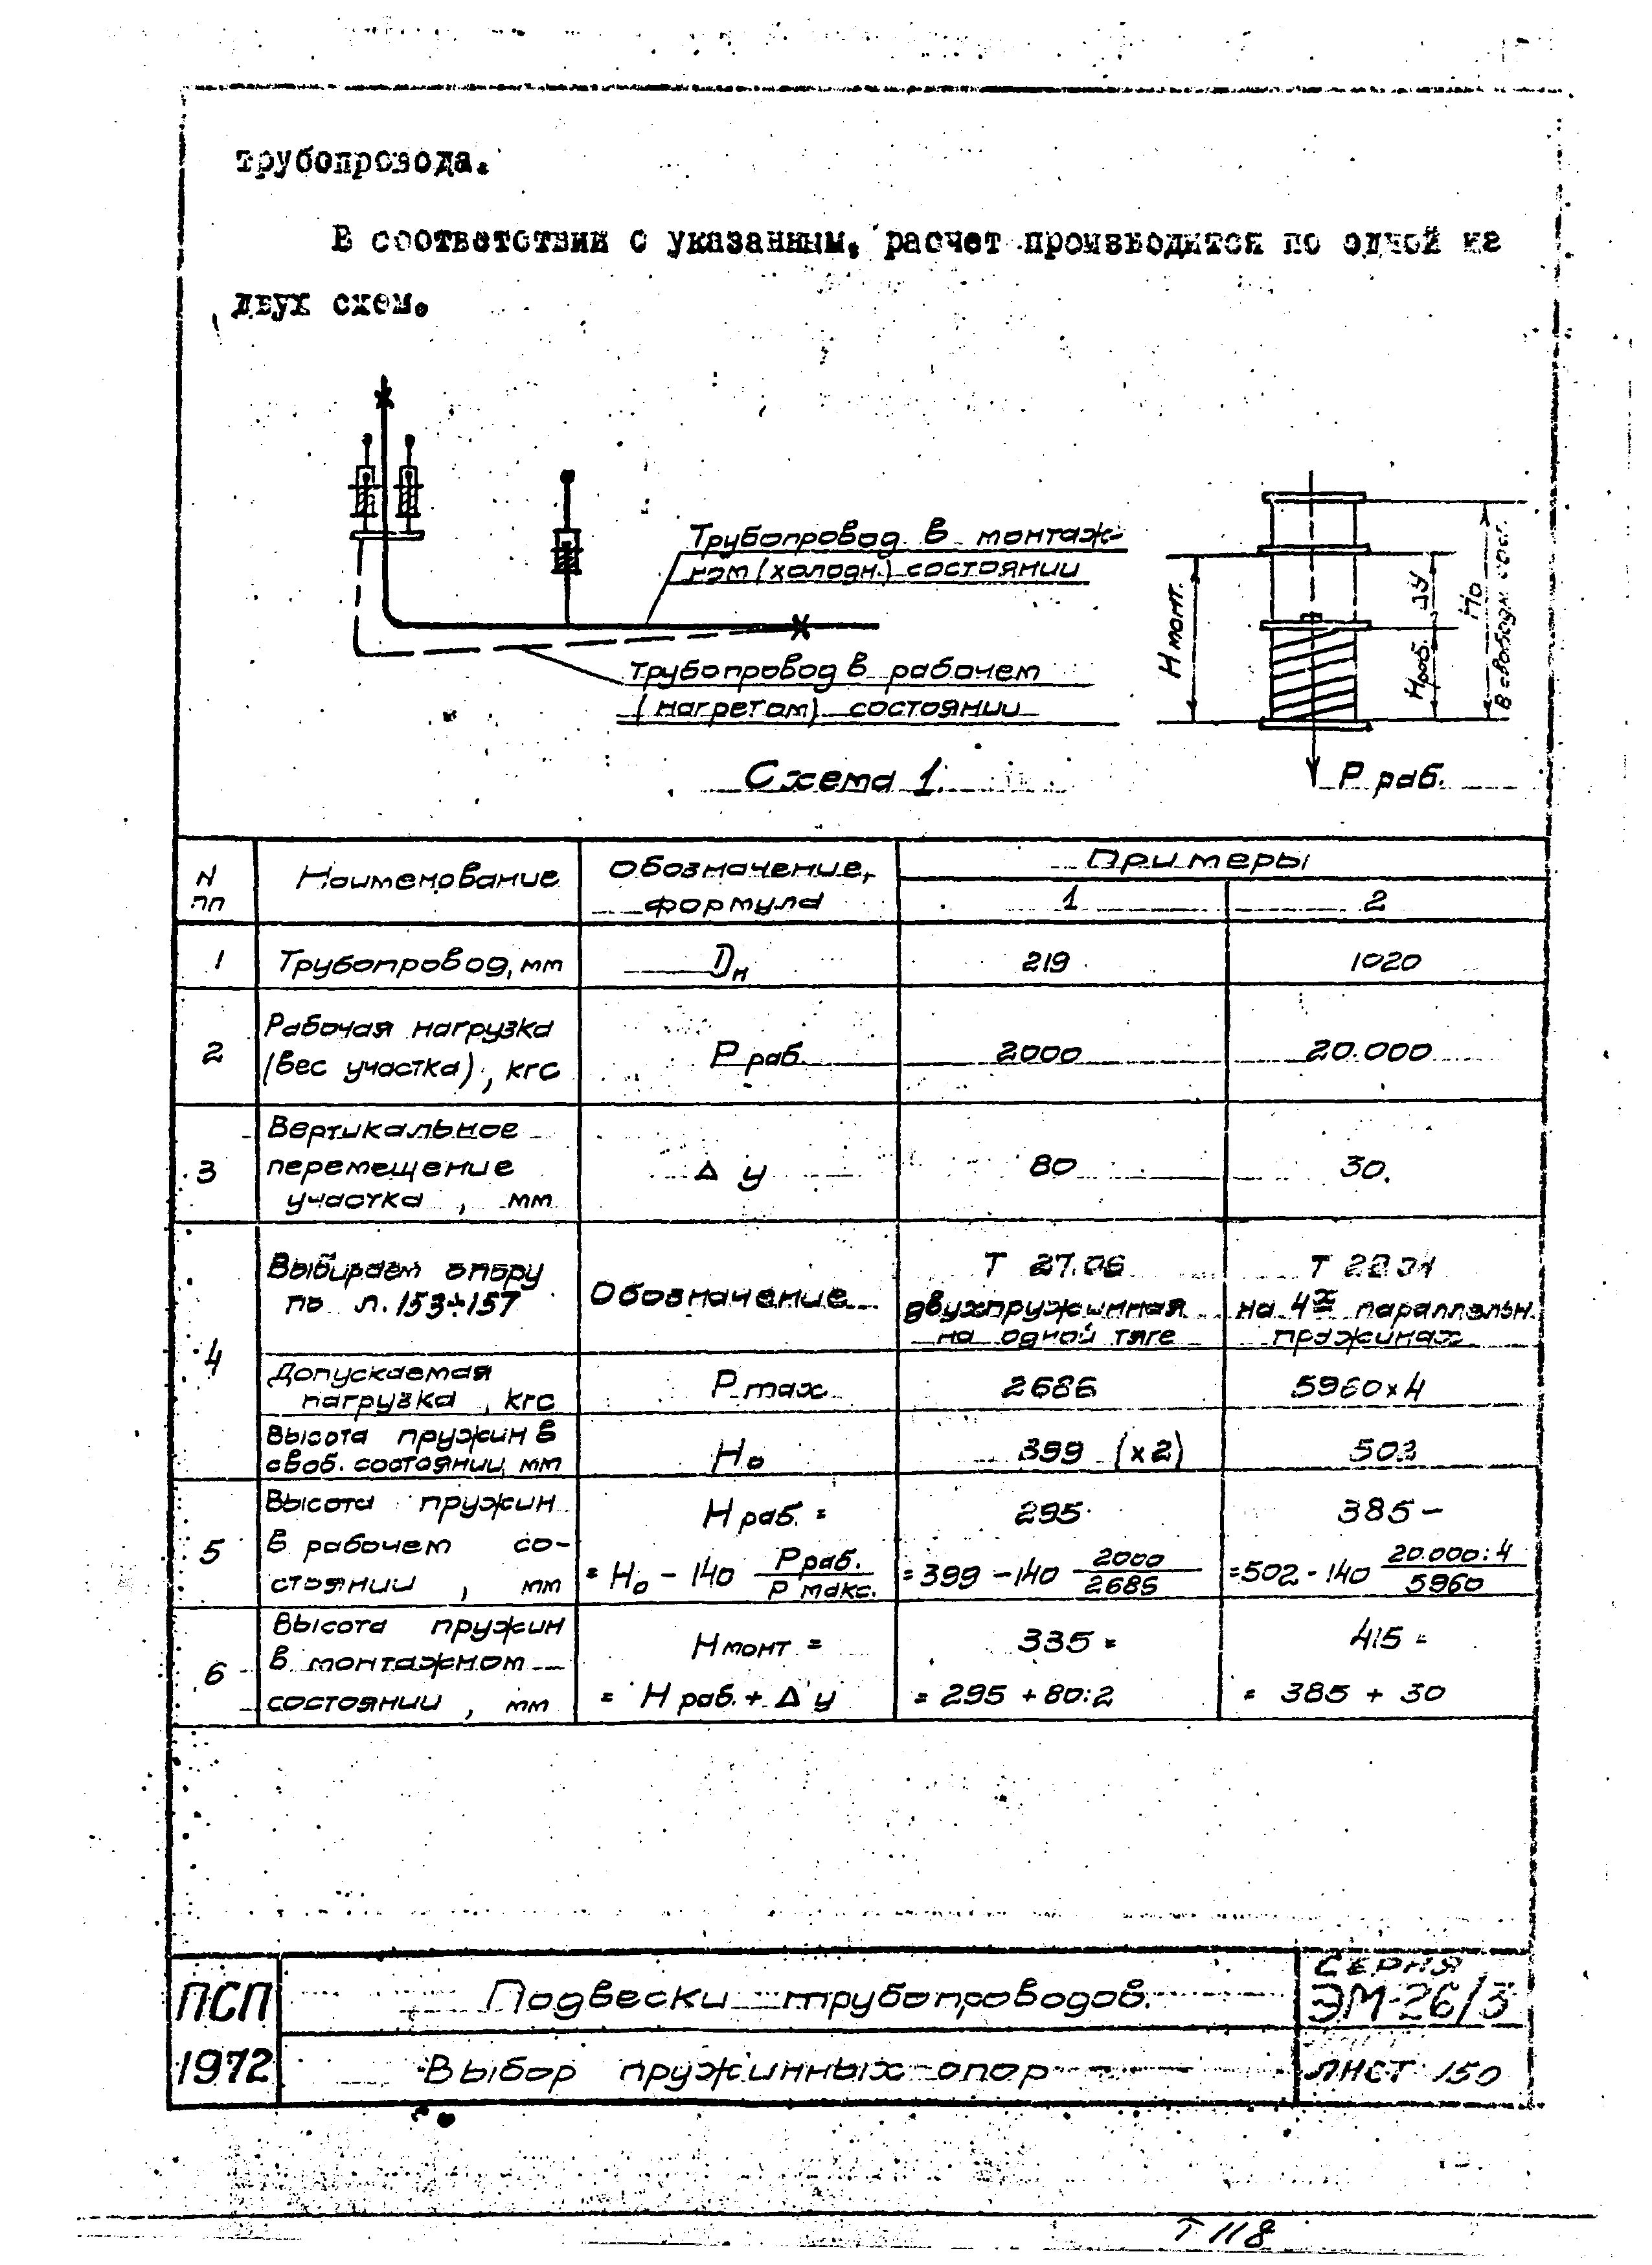 трубопровода.
В соответствии с указанным, расчет производится по одной из
двух схем.
Трубопровод в монтаж-
ном (холодн.) состоянии
Трубопровод в рабочем
(нагретом) состоянии
Н монт.
Δу
Н раб.
Но
В свободн. сост.
Р раб.
Схема 1.
N пп
Наименование
Обозначение,
формула
Примеры
1
2
1
Трубопровод, мм
Dн
219
1020
2
Рабочая нагрузка
(вес участка), кгс
Р раб.
2000
20.000
3
Вертикальное
перемещение
участка, мм
Δ у
80
30.
4
Выбираем опору
по л. 153÷157
Обозначение
Т 27.06
двухпружинная
на одной тяге
Т 22
на 4х параллельн.
пружинах
Допускаемая
нагрузка, кгс
Р max
2686
5960×4
Высота пружин в
своб. состоянии, мм
Но
399 (×2)
502
5
Высота пружин
в рабочем со-
стоянии, мм
Н раб. =
= Но - 140 Р раб. / Р макс.
295
= 399 - 140 2000 / 2686
385 -
= 502 - 140 20.000:4 / 5960
6
Высота пружин
в монтажном
состоянии, мм
Н монт =
= Н раб. + Δ у
335 =
= 295 + 80:2
415 =
= 385 + 30
ПСП
1972
Подвески трубопроводов.
Выбор пружинных опор
Серия
ЭМ-26/3
Лист 150
Т 118